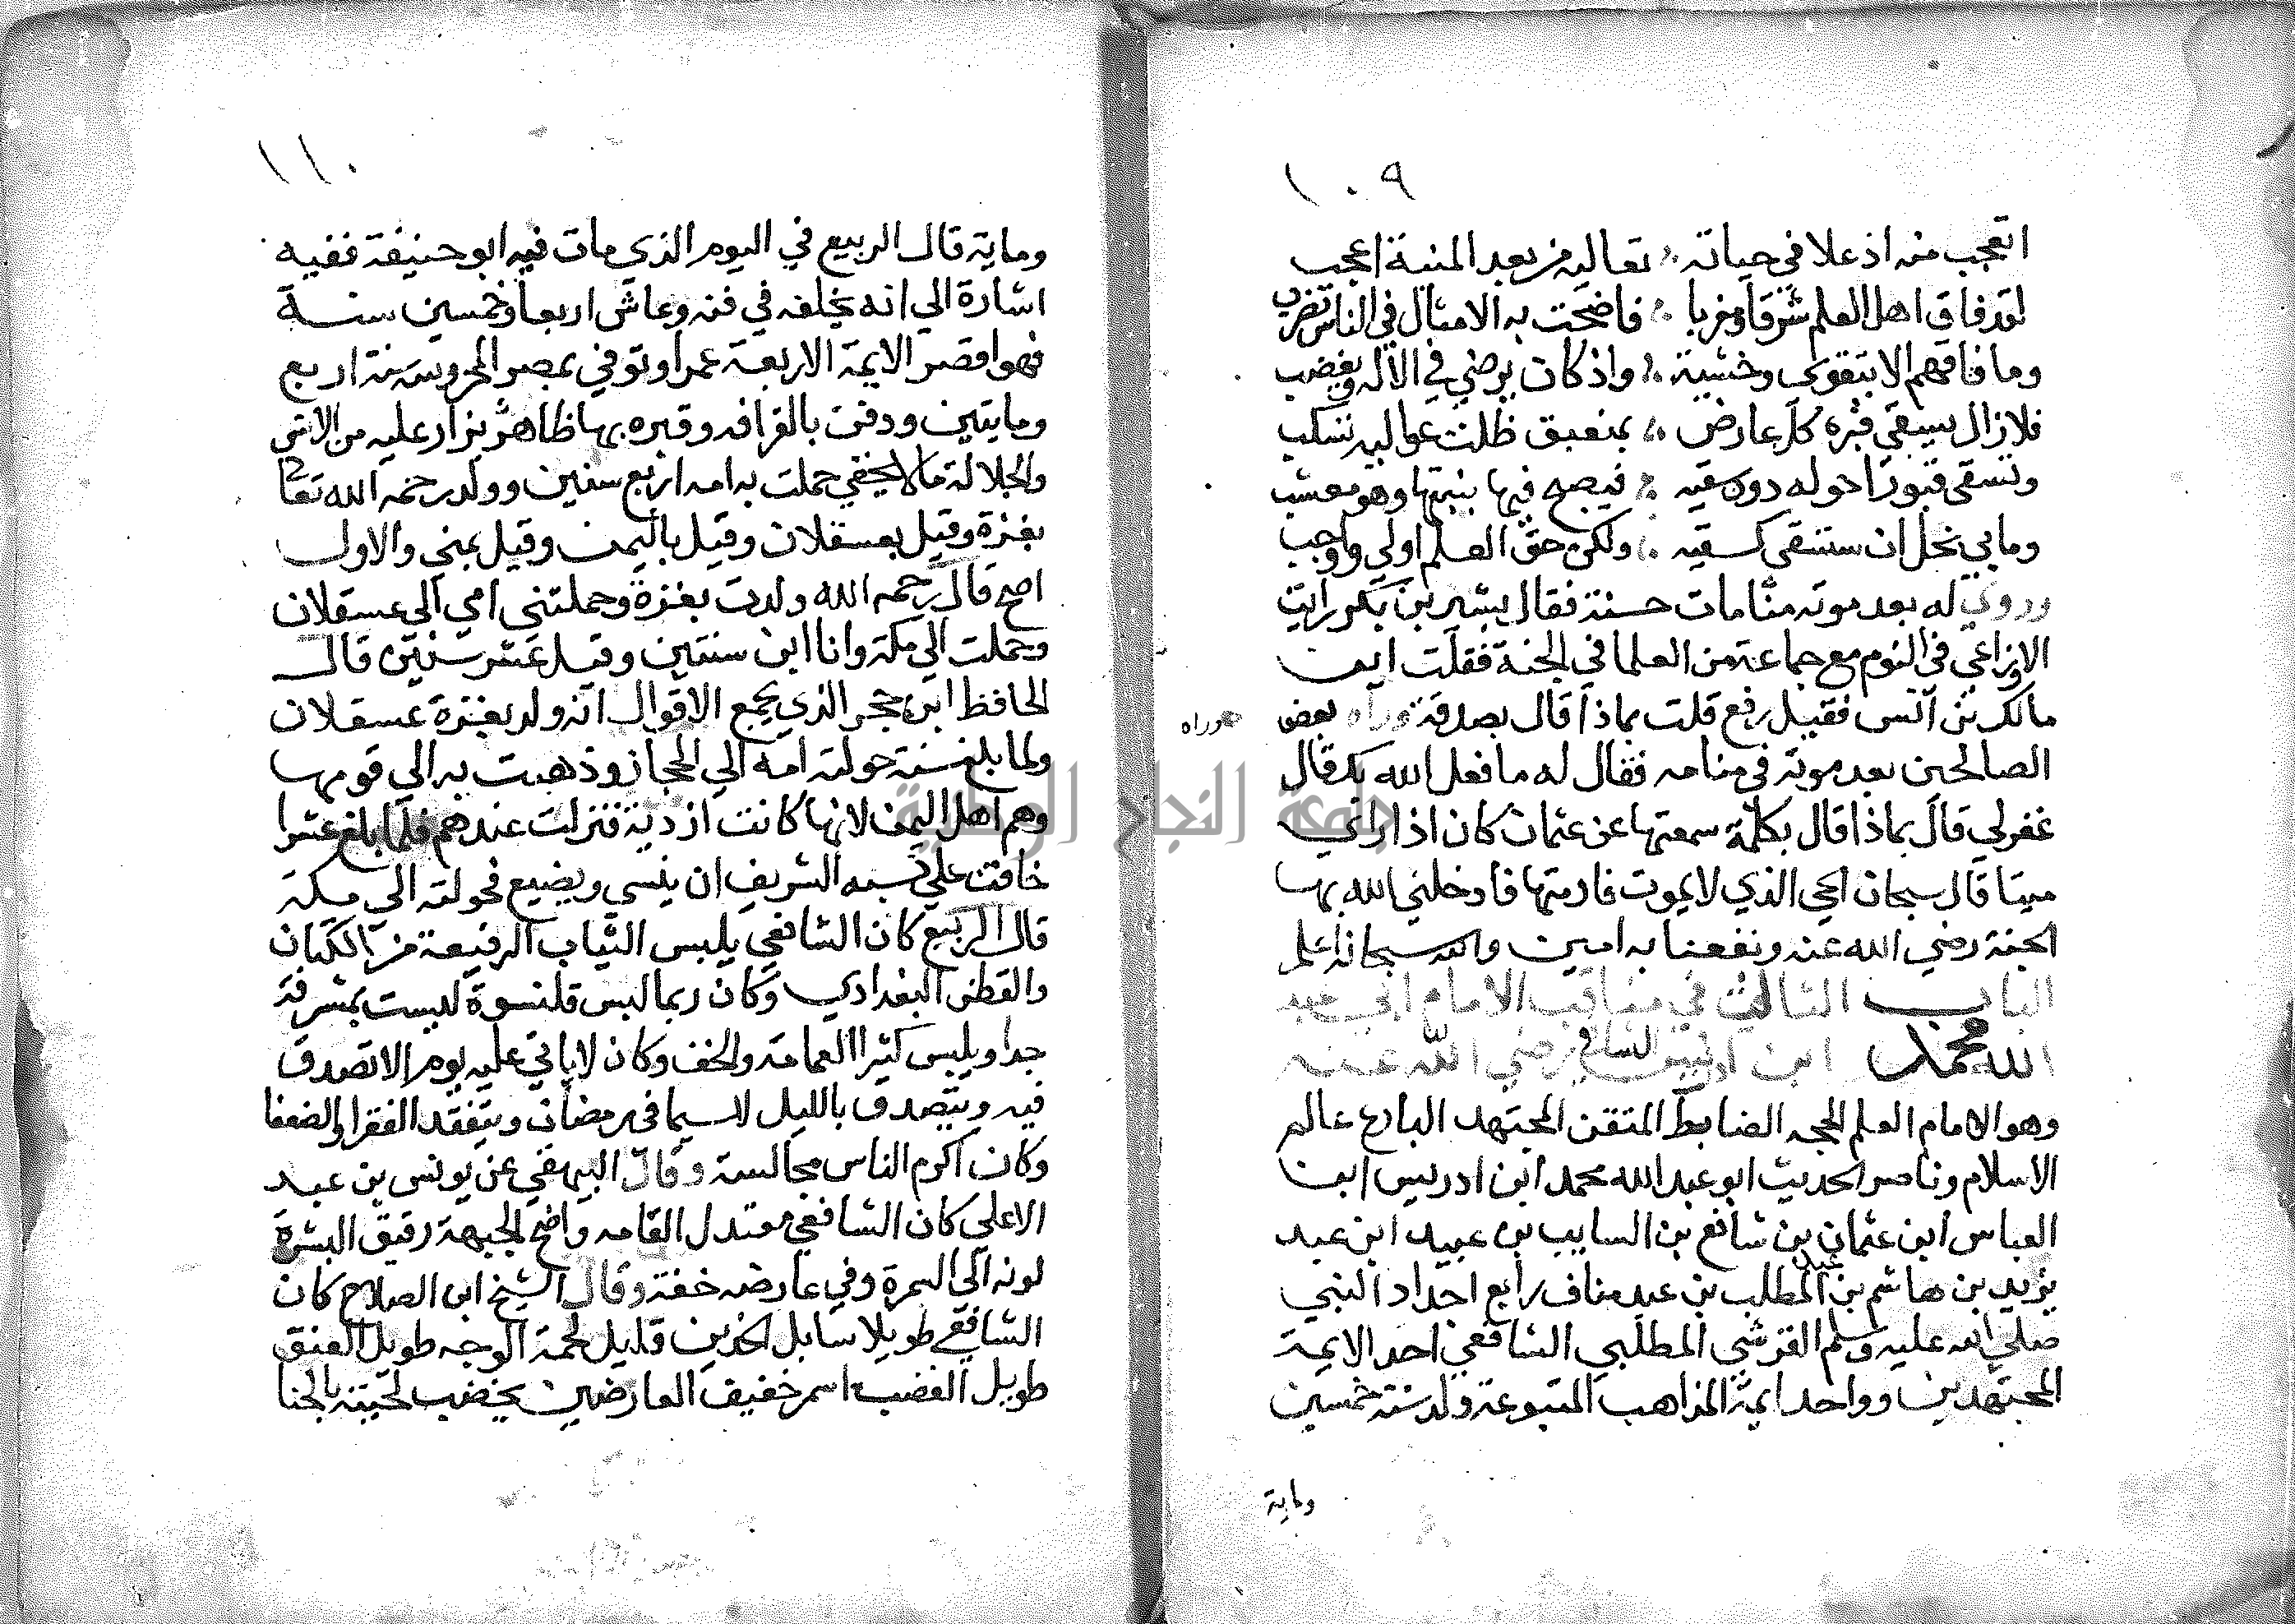 ١٠٩
اتعجب منه اذ علا في حياته تعاليه من بعد المنية اعجب
لقد فاق اهل العلم شرقا ومغربا فاضحت به الامثال في الناس تضرب
وما فاقهم الا بتقوى وخشية واذ كان يرضي في الاله ويغضب
فلا زال يسقي قبره كل عارض بمنبعق ظلت عواليه تسكب
وتسقي قبورا حوله دون سقيه فيصبح فيها بنبتها وهو معشب
وما بي بخل ان ستسقى كسقيه ولكن حق العلم اولي واوجب
وروي له بعد موته منامات حسنة فقال بشير بن بكر رايت
الاوزاعي في النوم مع جماعة من العلما في الجنة فقلت اين
مالك بن انس فقيل رفع قلت بماذا قال بصدقه وراه بعض
وراه
الصالحين بعد موته في منامه فقال له ما فعل الله بك قال
غفر لي قال بماذا قال بكلمة سمعتها عن عثمان كان اذا راي
ميتا قال سبحان الحي الذي لا يموت فادمتها فادخلني الله بها
الجنة رضي الله عنه ونفعنا به امين والله سبحانه اعلم
الباب الثالث في مناقب الامام ابي عبد
الله محمد ابن ادريس الشافعي رضي الله عنه
وهو الامام العلم الحجه الضابط المتقن المجتهد البارع عالم
الاسلام وناصر الحديث ابو عبد الله محمد ابن ادريس ابن
العباس ابن عثمان بن شافع بن السايب بن عبيد ابن عبد
يزيد بن هاشم بن عبد المطلب بن عبد مناف رابع اجداد النبي
صلي الله عليه وسلم القرشي المطلبي الشافعي احد الايمة
المجتهدين وواحد ايمة المذاهب المتبوعة ولد سنة خمسين
وماية
١١٠
وماية قال الربيع في اليوم الذي مات فيه ابو حنيفة ففيه
اشارة الي انه يخلفه في فنه وعاش اربعا وخمسين سنة
فهو اقصر الايمة الاربعة عمرا وتوفي بمصر المحروسة سنة اربع
ومايتين ودفن بالقرافه وقبره بها ظاهر يزار عليه من الانس
والجلالة مالا يخفي حملت به امه اربع سنين وولد رحمه الله تعا
بغزة وقيل بعسقلان وقيل باليمن وقيل بمني والاول
اصح قال رحمه الله ولدت بغزة وحملتني امي الي عسقلان
وحملت الي مكة وانا ابن سنتين وقيل عشر سنين قال
الحافظ ابن حجر الذي يجمع الاقوال انه ولد بغزة عسقلان
ولما بلغ سنة حولته امه الي الحجاز وذهبت به الي قومها
وهم اهل اليمن لانها كانت ازدية فنزلت عندهم فلما بلغ عشرا
خافت علي نسبه الشريف ان ينسي ويضيع فحولته الي مكة
قال الربيع كان الشافعي يلبس الثياب الرفيعة من الكتان
والقطن البغدادي وكان ربما لبس قلنسوة ليست بمشرفة
جدا ويلبس كثيرا العمامة والخف وكان لا ياتي عليه يوم الا تصدق
فيه ويتصدق بالليل لا سيما في رمضان ويتفقد الفقرا والضعفا
وكان اكرم الناس مجالسة وقال البيهقي عن يونس بن عبد
الاعلي كان الشافعي معتدل القامه واضح الجبهة رقيق البشرة
لونه الي السمرة وفي عارضه خفة وقال الشيخ ابن الصلاح كان
الشافعي طويلا سابل الخدين قليل لحمة الوجه طويل العنق
طويل القضب اسمر خفيف العارضين يخضب لحيته بالحنا
جامعة النجاح الوطنية